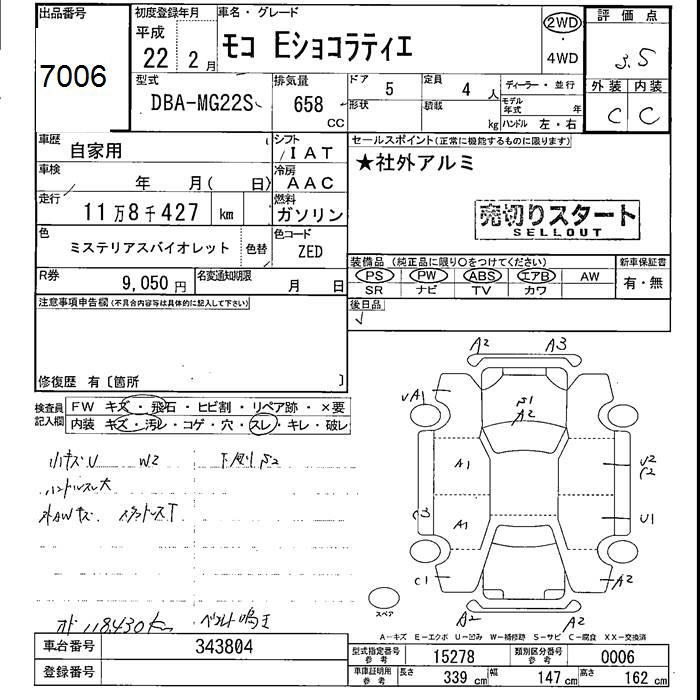 出品番号
7006
初度登録年月
平成
22 2月
車名・グレード
モコ Eショコラティエ
2WD
4WD
評価点
3.5
外装 内装
C C
型式
DBA-MG22S
排気量
658
CC
ドア 5
定員 4 人
形状
積載 kg
ディーラー・並行
モデル年式 年
ハンドル 左・右
車歴
自家用
シフト
IAT
車検
年 月( 日)
冷房
AAC
走行
11万8千427 km
燃料
ガソリン
色
ミステリアスバイオレット
色替
色コード
ZED
R券
9,050円
名変通知期限
月 日
セールスポイント(正常に機能するものに限ります)
★社外アルミ
売切りスタート
SELLOUT
装備品 (純正品に限り○をつけてください)
PS PW ABS エアB AW
SR ナビ TV カワ
新車保証書
有・無
後日品
注意事項申告欄(不具合内容等は具体的に記入して下さい)
修復歴 有〔箇所 〕
検査員記入欄
FW キズ・飛石・ヒビ割・リペア跡・×要
内装 キズ・汚レ・コゲ・穴・スレ・キレ・破レ
小キズU W2 下廻りS2
ハンドルスレ大
外AWキズ
118430km
A2 A3
A1
S1
A2
A1
A1
U2
C2
C3
U1
C1
A2
A2 A2
スペア
A-キズ E-エクボ U-凹み W-補修跡 S-サビ C-腐食 XX-交換済
車台番号
343804
登録番号
型式指定番号 参考
15278
類別区分番号 参考
0006
車庫証明用 参考
長さ 339 cm
幅 147 cm
高さ 162 cm